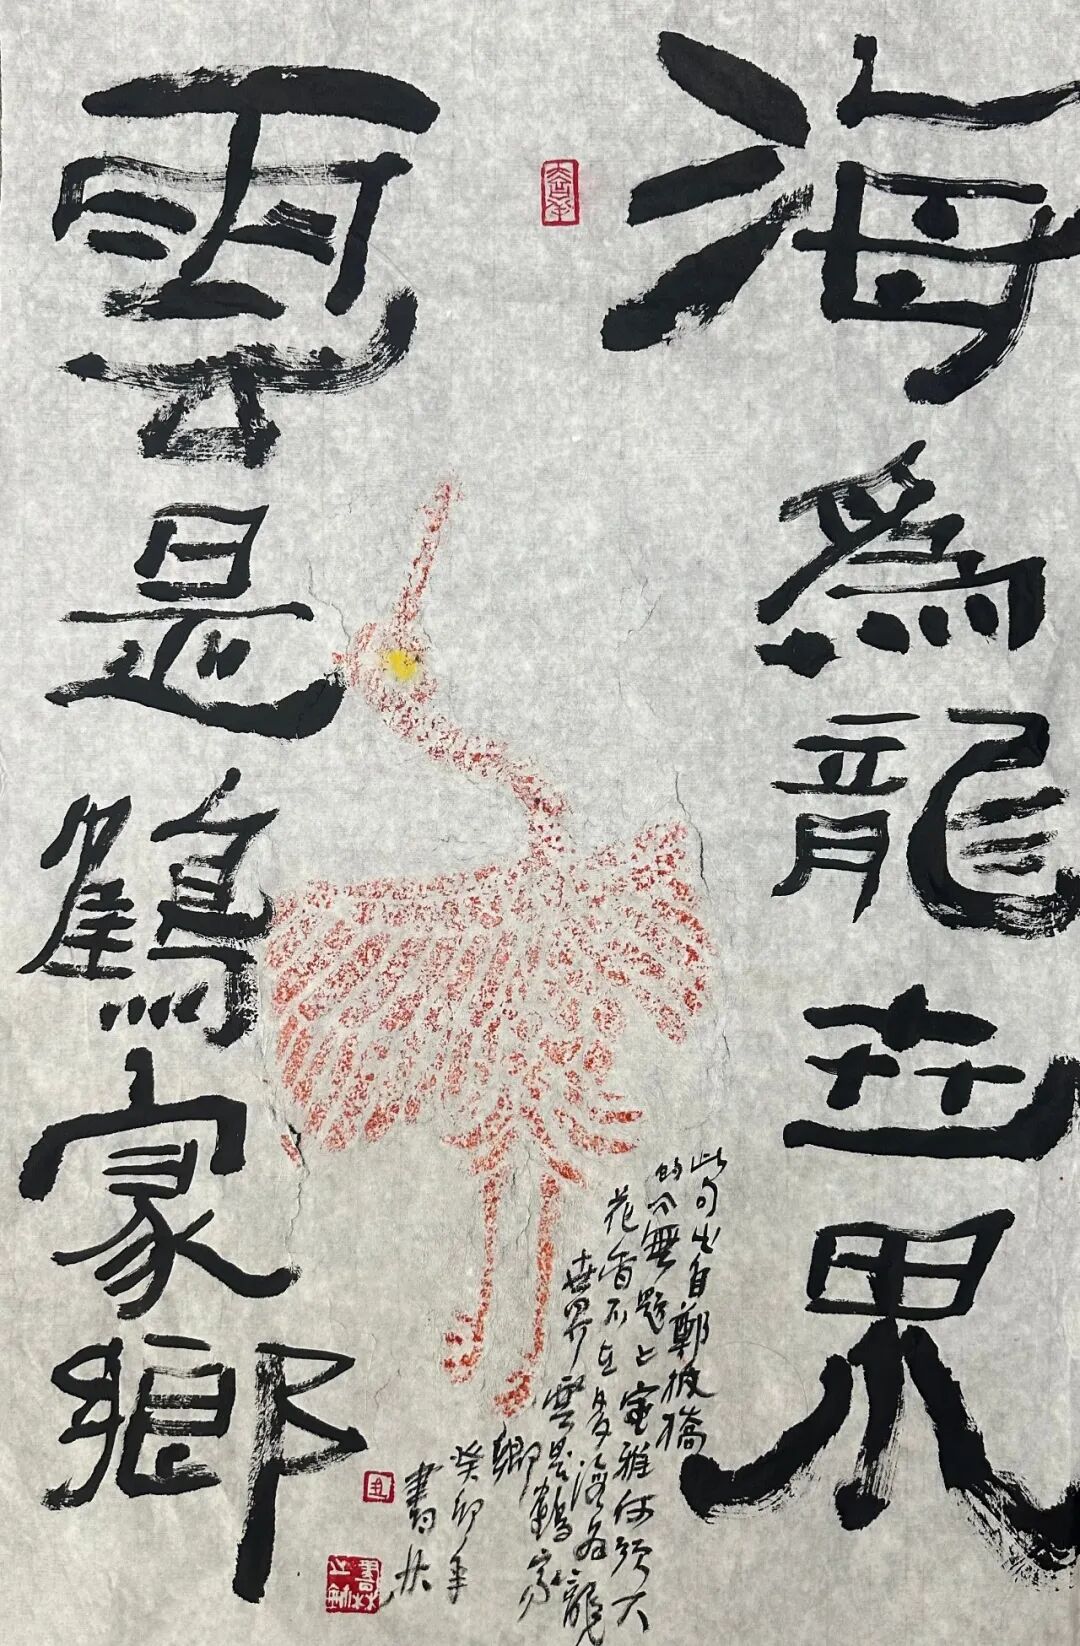 海為龍世界
雲是鶴家鄉
此句出自鄭板橋
的《無題》室雅何須大
花香不在多海為龍
世界雲是鶴家
鄉
癸卯年
書林